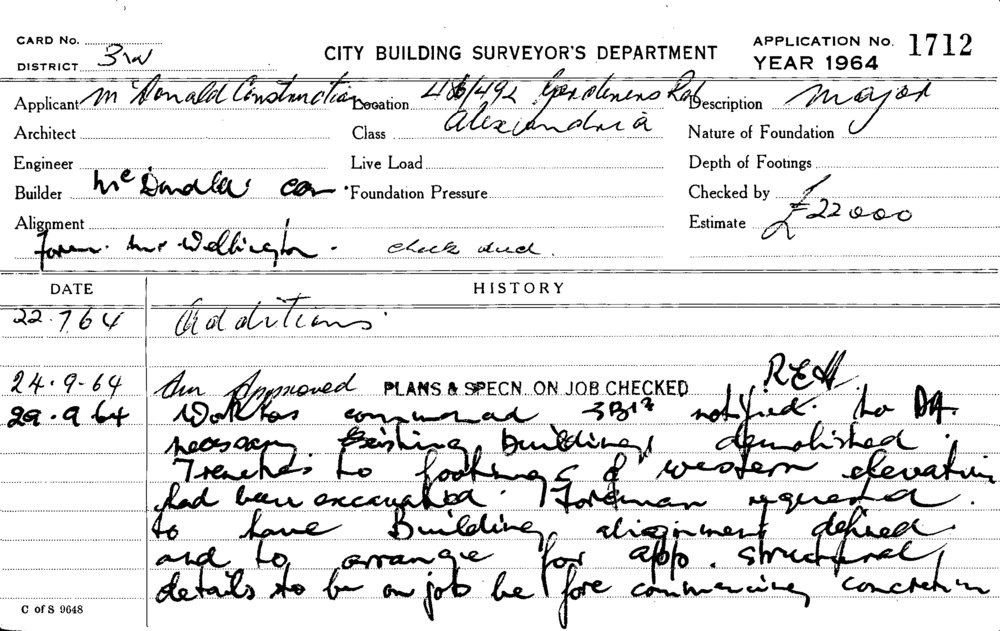 CARD No.
DISTRICT 3rd
CITY BUILDING SURVEYOR'S DEPARTMENT
APPLICATION No. 1712
YEAR 1964
Applicant McDonald Construction Location 486/492 Gardeners Rd Description Major
Architect Class Alexandria Nature of Foundation
Engineer Live Load Depth of Footings
Builder Foundation Pressure Checked by
Alignment Estimate £22000
Wellington. check
DATE HISTORY
22.7.64 Additions
24.9.64 Approved PLANS & SPECN. ON JOB CHECKED
29.9.64 Work has commenced notified to DA.
necessary Existing buildings demolished.
Trenches to footings of western elevation
had been excavated. Foreman requested
to have Building alignment defined
and to arrange for app. structural
details to be on job before commencing concreting
C of S 9648